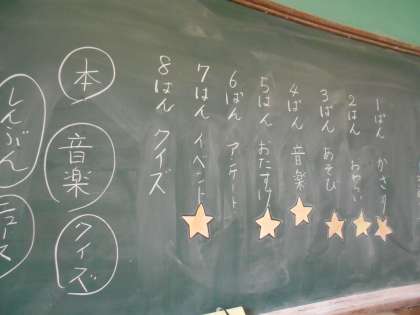 1ぱん かざり
2はん おわらい
3ぱん あそび
4ぱん 音楽
5はん おたすけ
6ぱん アンケート
7はん イベント
8はん クイズ
本
音楽
クイズ
しんぶん
ニュース